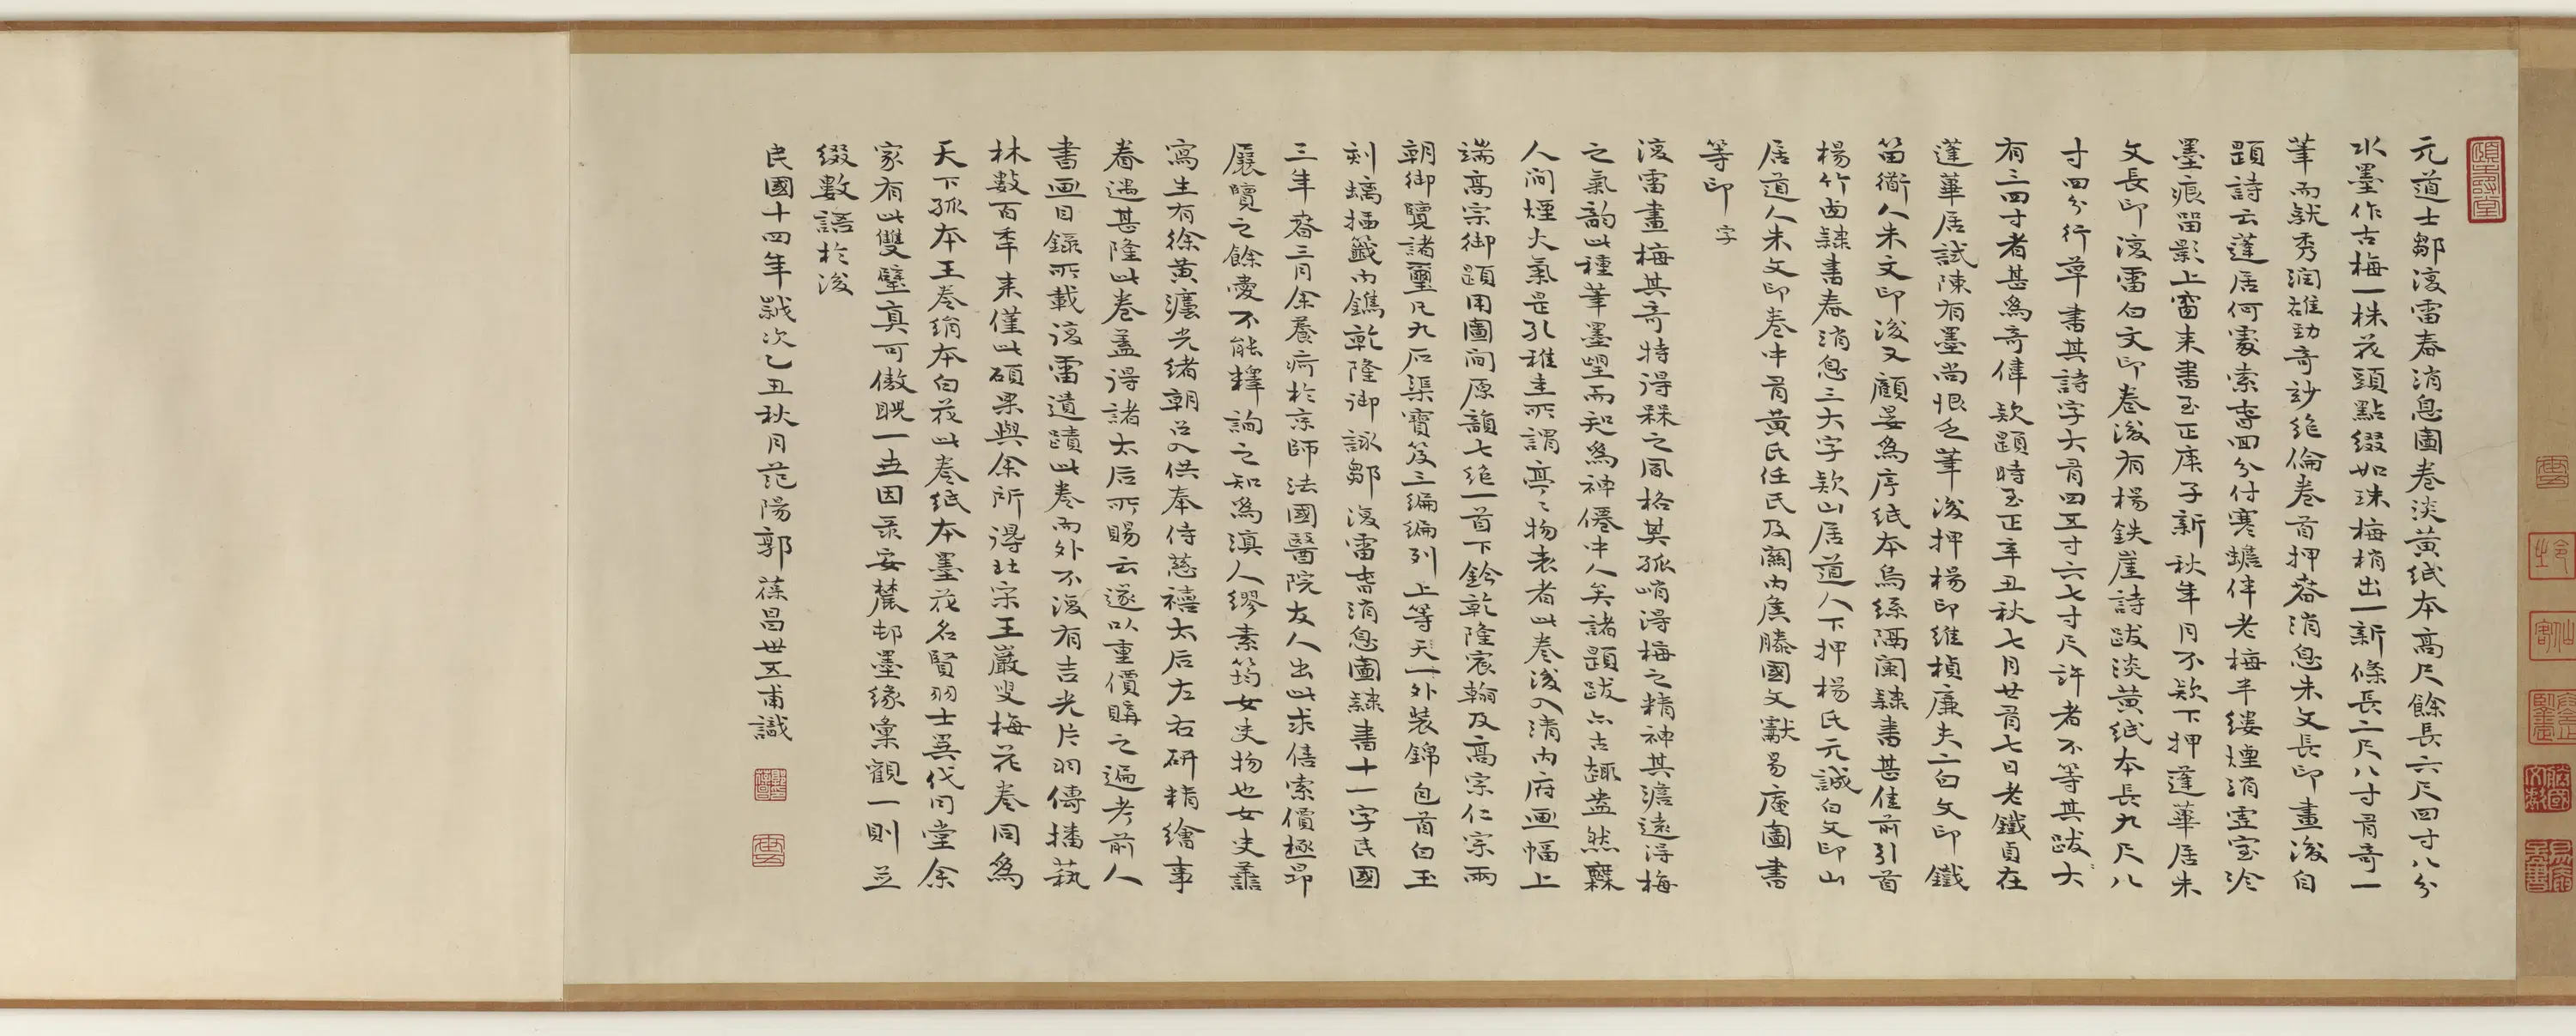 元道士鄒復雷春消息圖卷淡黃紙本高尺餘長六尺四寸八分
水墨作古梅一株花頭點綴如珠梅梢出一新條長二尺八寸有奇一
筆而就秀潤雄勁奇妙絶倫卷首押春消息朱文長印畫後自
題詩云蓬居何處索春回分付寒蟾伴老梅半縷煙消虛室冷
墨痕留影上窗來書至正庚子新秋年月不欵下押蓬蓽居朱
文長印復雷白文印卷後有楊鉄崖詩跋淡黃紙本長九尺八
寸四分行草書其詩字大有四五寸六七寸尺許者不等其跋大
有三四寸者甚為奇偉欵題時至正辛丑秋七月廿有七日老鐵貞在
蓬蓽居試陳有墨尚恨乏筆後押楊印維楨廉夫二白文印鐵
笛衜人朱文印後又顧晏為序紙本烏絲隔闌隸書甚佳前引首
楊竹西隸書春消息三大字欵山居道人下押楊氏元誠白文印山
居道人朱文印卷中有黃氏任氏及關內矦滕國文獻易庵圖書
等印 字
復雷畫梅其奇特得槑之風格其孤峭得梅之精神其澹遠得梅
之氣韵此種筆墨望而知為神僊中人矣諸題跋亦古趣盎然無
人間煙火氣是孔稚圭所謂亭亭物表者此卷後入清內府画幅上
端高宗御題用圖間原韻七絶一首下鈐乾隆宸翰及高宗仁宗兩
朝御覽諸璽凡九石渠寶笈三編編列上等天一外裝錦包首白玉
刻螭插籤內鐫乾隆御詠鄒復雷春消息圖隸書十一字民國
三年春三月余養疴於京師法國醫院友人出此求售索價極昻
展覽之餘愛不能釋詢之知為滇人繆素筠女史物也女史善
寫生有徐黃濅光緒朝召入供奉侍慈禧太后左右研精繪事
眷遇甚隆此卷蓋得諸太后所賜云遂以重價購之遍考前人
書画目錄所載復雷遺蹟此卷而外不復有吉光片羽傳播萟
林數百年來僅此碩果與余所得北宋王巖叟梅花卷同為
天下孤本王卷絹本白花此卷紙本墨花名賢羽士異代同堂余
家有此雙璧真可傲睨一世因录安麓邨墨緣彙觀一則並
綴數語於後
民國十四年歲次乙丑秋月范陽郭葆昌世五甫識